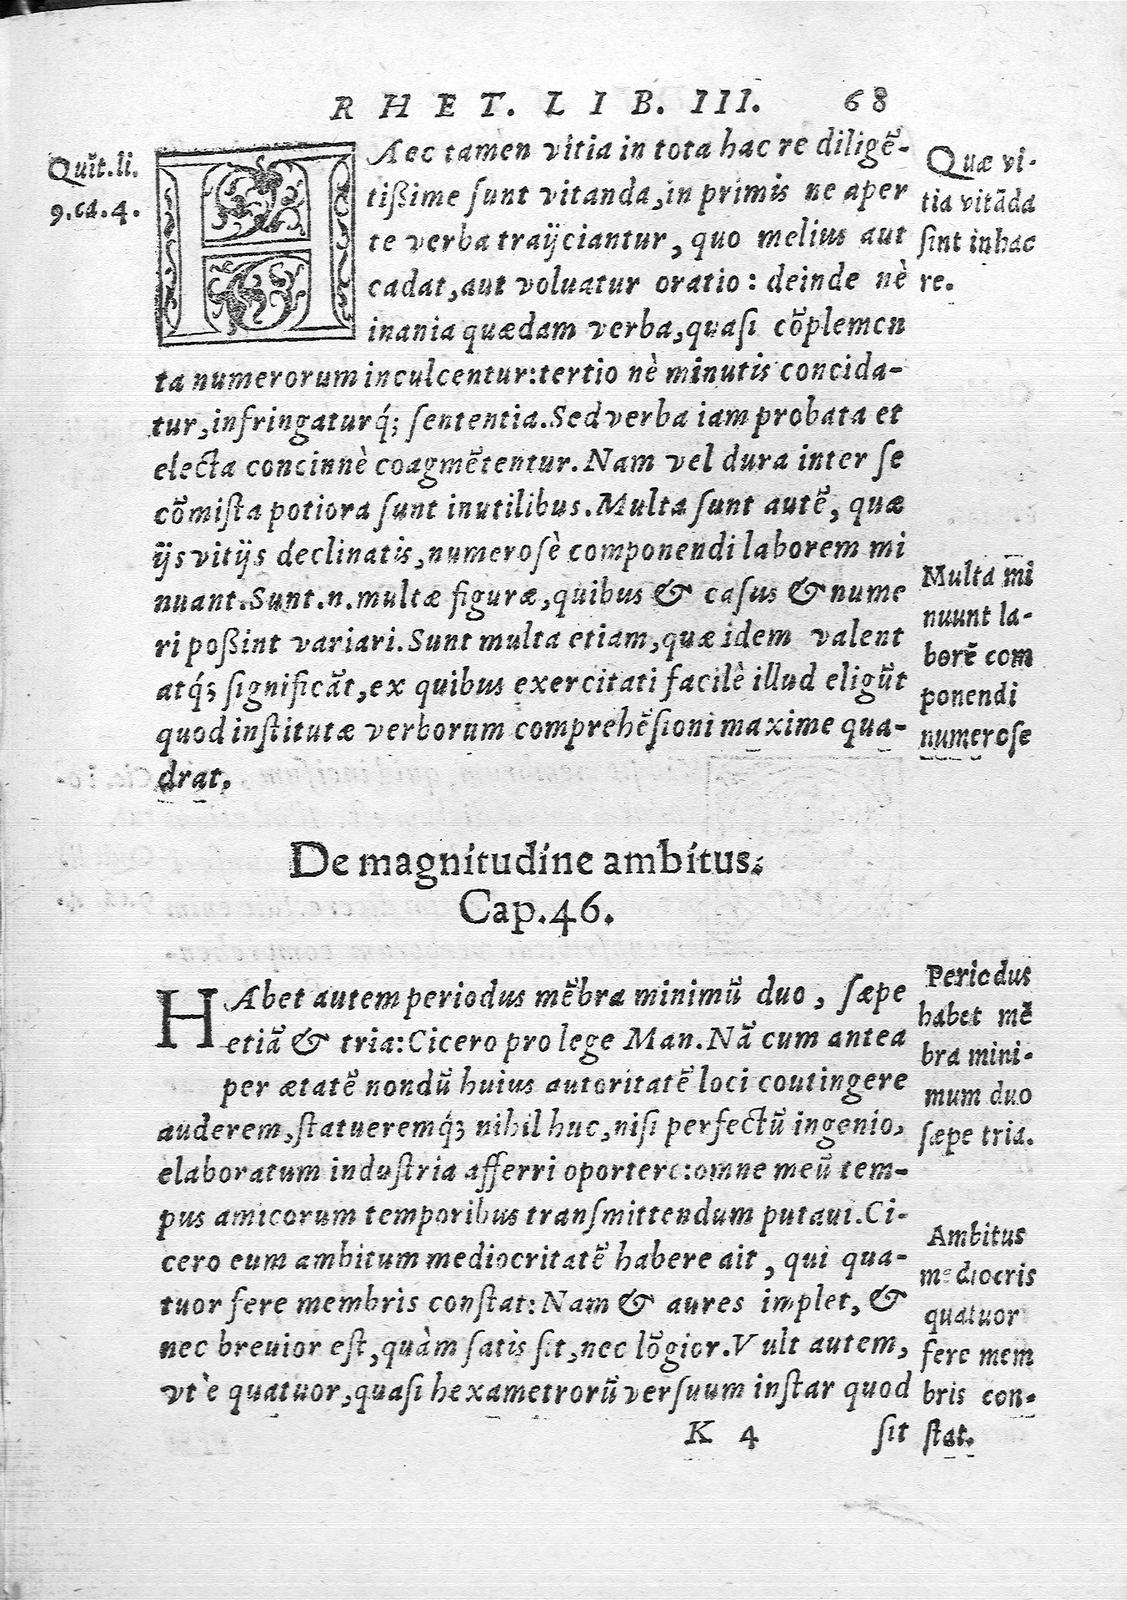 RHET. LIB. III. 68
Quĩt. li.
9. ca. 4.
HAec tamen vitia in tota hac re diligẽ-
tißime ſunt vitanda, in primis ne aper
te verba traijciantur, quo melius aut
cadat, aut voluatur oratio: deinde nè
inania quædam verba, quaſi cõplemen
ta numerorum inculcentur: tertio nè minutis concida-
tur, infringaturq́; ſententia. Sed verba iam probata et
electa concinnè coagmẽtentur. Nam vel dura inter ſe
cõmiſta potiora ſunt inutilibus. Multa ſunt autẽ, quæ
ijs vitijs declinatis, numeroſè componendi laborem mi
nuant. Sunt .n. multæ figuræ, quibus & caſus & nume
ri poßint variari. Sunt multa etiam, quæ idem valent
atq́; ſignificãt, ex quibus exercitati facilè illud eligũt
quod inſtitutæ verborum comprehẽſioni maxime qua-
drat.
Quæ vi-
tia vitãda
ſint in hac
re.
Multa mi
nuunt la-
borẽ com
ponendi
numeroſe
De magnitudine ambitus.
Cap. 46.
HAbet autem periodus mẽbra minimũ duo, ſæpe
etiã & tria: Cicero pro lege Man. Nã cum antea
per ætatẽ nondũ huius autoritatẽ loci coutingere
auderem, ſtatueremq́; nihil huc, niſi perfectũ ingenio,
elaboratum induſtria afferri oportere: omne meũ tem-
pus amicorum temporibus tranſmittendum putaui. Ci-
cero eum ambitum mediocritatẽ habere ait, qui qua-
tuor fere membris conſtat: Nam & aures implet, &
nec breuior eſt, quàm ſatis ſit, nec lõgior. Vult autem,
vt è quatuor, quaſi hexametrorũ verſuum inſtar quod
Periodus
habet mẽ
bra mini-
mum duo
ſæpe tria.
Ambitus
mediocris
quatuor
fere mem
bris con-
ſtat.
K 4 ſit